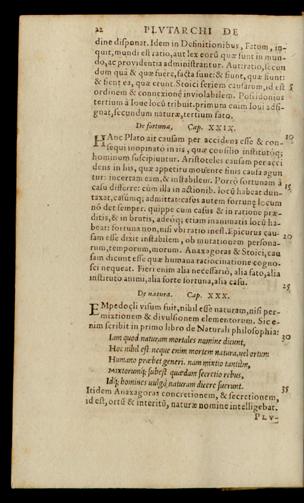 22 PLVTARCHI DE
dine disponat. Idem in Definitionibus, Fatum, in-
quit, mundi est ratio, aut lex eorũ quæ sunt in mun-
do, ac prouidentia administrantur. Aut ratio, secun
dum quã & quæ fuere, facta sunt: & fiunt, quæ fiunt:
& fient ea, quæ erunt. Stoici seriem causarum, id est 5
ordinem & connexionē inuiolabilem. Posidonius
tertium à Ioue locũ tribuit. primum enim Ioui adsi-
gnat, secundum naturæ, tertium fato.
De fortuna, Cap. XXIX.
HAnc Plato ait causam per accidens esse & con- 10
sequi inopinato in iis, quæ consilio institutóq;
hominum suscipiuntur. Aristoteles causam per acci
dens in his, quæ appetitu mouente finis causa agun
tur: incertam eam, & instabilem. Porrò fortunam à
casu differre: cùm illa in actionib. locũ habeat dun- 15
taxat, casúmq; admittat: casus autem fortunę locum
nō det semper. quippe cum casus & in ratione præ-
ditis, & in brutis, adeóq; etiam inanimatis locũ ha-
beat: fortuna non, nisi vbi ratio inest. Epicurus cau-
sam esse dixit instabilem, ob mutationem persona- 20
rum, temporum, morum. Anaxagoras & Stoici, cau
sam dicunt esse quæ humana ratiocinatione cogno-
sci nequeat. Fieri enim alia necessariò, alia fato, alia
instituto animi, alia forte fortuna, alia casu.
De natura. Cap. XXX. 25
EMpedocli visum fuit, nihil esse naturam, nisi per-
mixtionem & diuulsionem elementorum. Sic e-
nim scribit in primo libro de Naturali philosophia:
Iam quod naturam mortales nomine dicunt,
Hoc nihil est neque enim mortem natura, vel ortum 30
Humano præbet generi. nam mixtio tantùm,
Mixtorumq; subest quædam secretio rebus,
Idq; homines uulgò naturam dicere suerunt.
Itidem Anaxagoras concretionem, & secretionem, 35
id est, ortũ & interitũ, naturæ nomine intelligebat.
PLV-